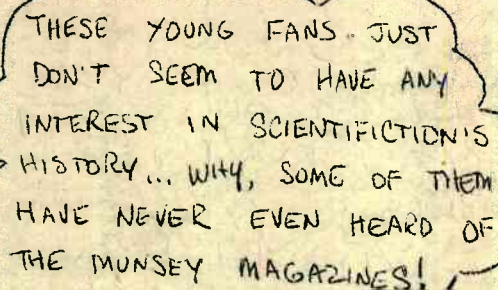 THESE YOUNG FANS JUST
DON'T SEEM TO HAVE ANY
INTEREST IN SCIENTIFICTION'S
HISTORY... WHY, SOME OF THEM
HAVE NEVER EVEN HEARD OF
THE MUNSEY MAGAZINES!